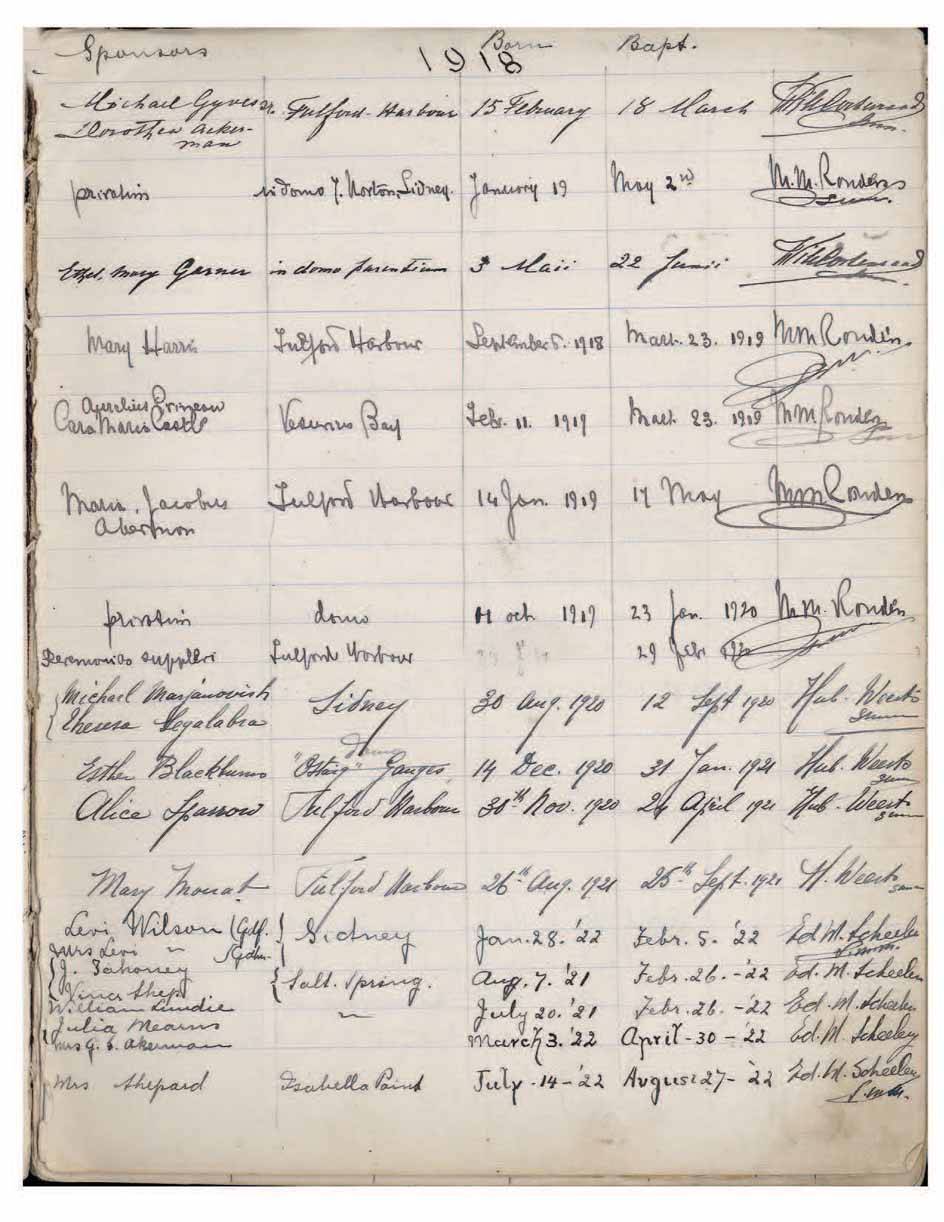 Sponsors Born Bapt.
1918
Michael Gyves Sr. Fulford-Harbour 15 February 18 March
Dorothea Aker-
man
privatim in domo J. Norton, Sidney. January 19 May 2nd M.M. Ronden
Ethel Mary Garner in domo parentium 3 Maii 22 Junii
Mary Harris Fulford Harbour September 5. 1918 Mart. 23. 1919 M M Ronden
Aurelius Primeau
Cara Maria Castle Vesuvius Bay Febr. 11. 1919 Mart. 23. 1919 M.M. Ronden
Maria, Jacobus Fulford Harbour 14 Jan. 1919 17 May M M Ronden
Akerman
privatim domo 11 oct 1919 23 Jan. 1920 M.M. Ronden
Ceremonias suppleri Fulford Harbour 29 Febr 1920
Michael Marjanovish Sidney 30 Aug. 1920 12 Sept 1920 Hub. Weerts
Theresa Segalabra smm
domo
Esther Blackburn "Ostaig" Ganges, 14 Dec. 1920 31 Jan. 1921 Hub. Weerts
smm
Alice Sparrow Fulford Harbour 30th Nov. 1920 24 April 1921 Hub. Weerts
smm
Mary Mouat Fulford Harbour 26th Aug. 1921 25th Sept. 1921 H. Weerts smm
Levi Wilson (Gdf. Sidney Jan. 28. '22 Febr. 5. '22 Ed M. Scheelen
Mrs Levi " (Gdm. S.m.m.
J. Zahoney Salt. Spring. Aug. 7. '21 Febr. 26. - '22 Ed. M. Scheelen
Shep.
William Lundie " July 20. '21 Febr. 26. - '22 Ed. M. Scheelen
Julia Mearns
Mrs J. Akerman March 3. '22 April - 30 - '22 Ed. M. Scheelen
Mrs Shepard Isabella Point July - 14 - '22 August 27 - '22 Ed. M. Scheelen
S.m.m.